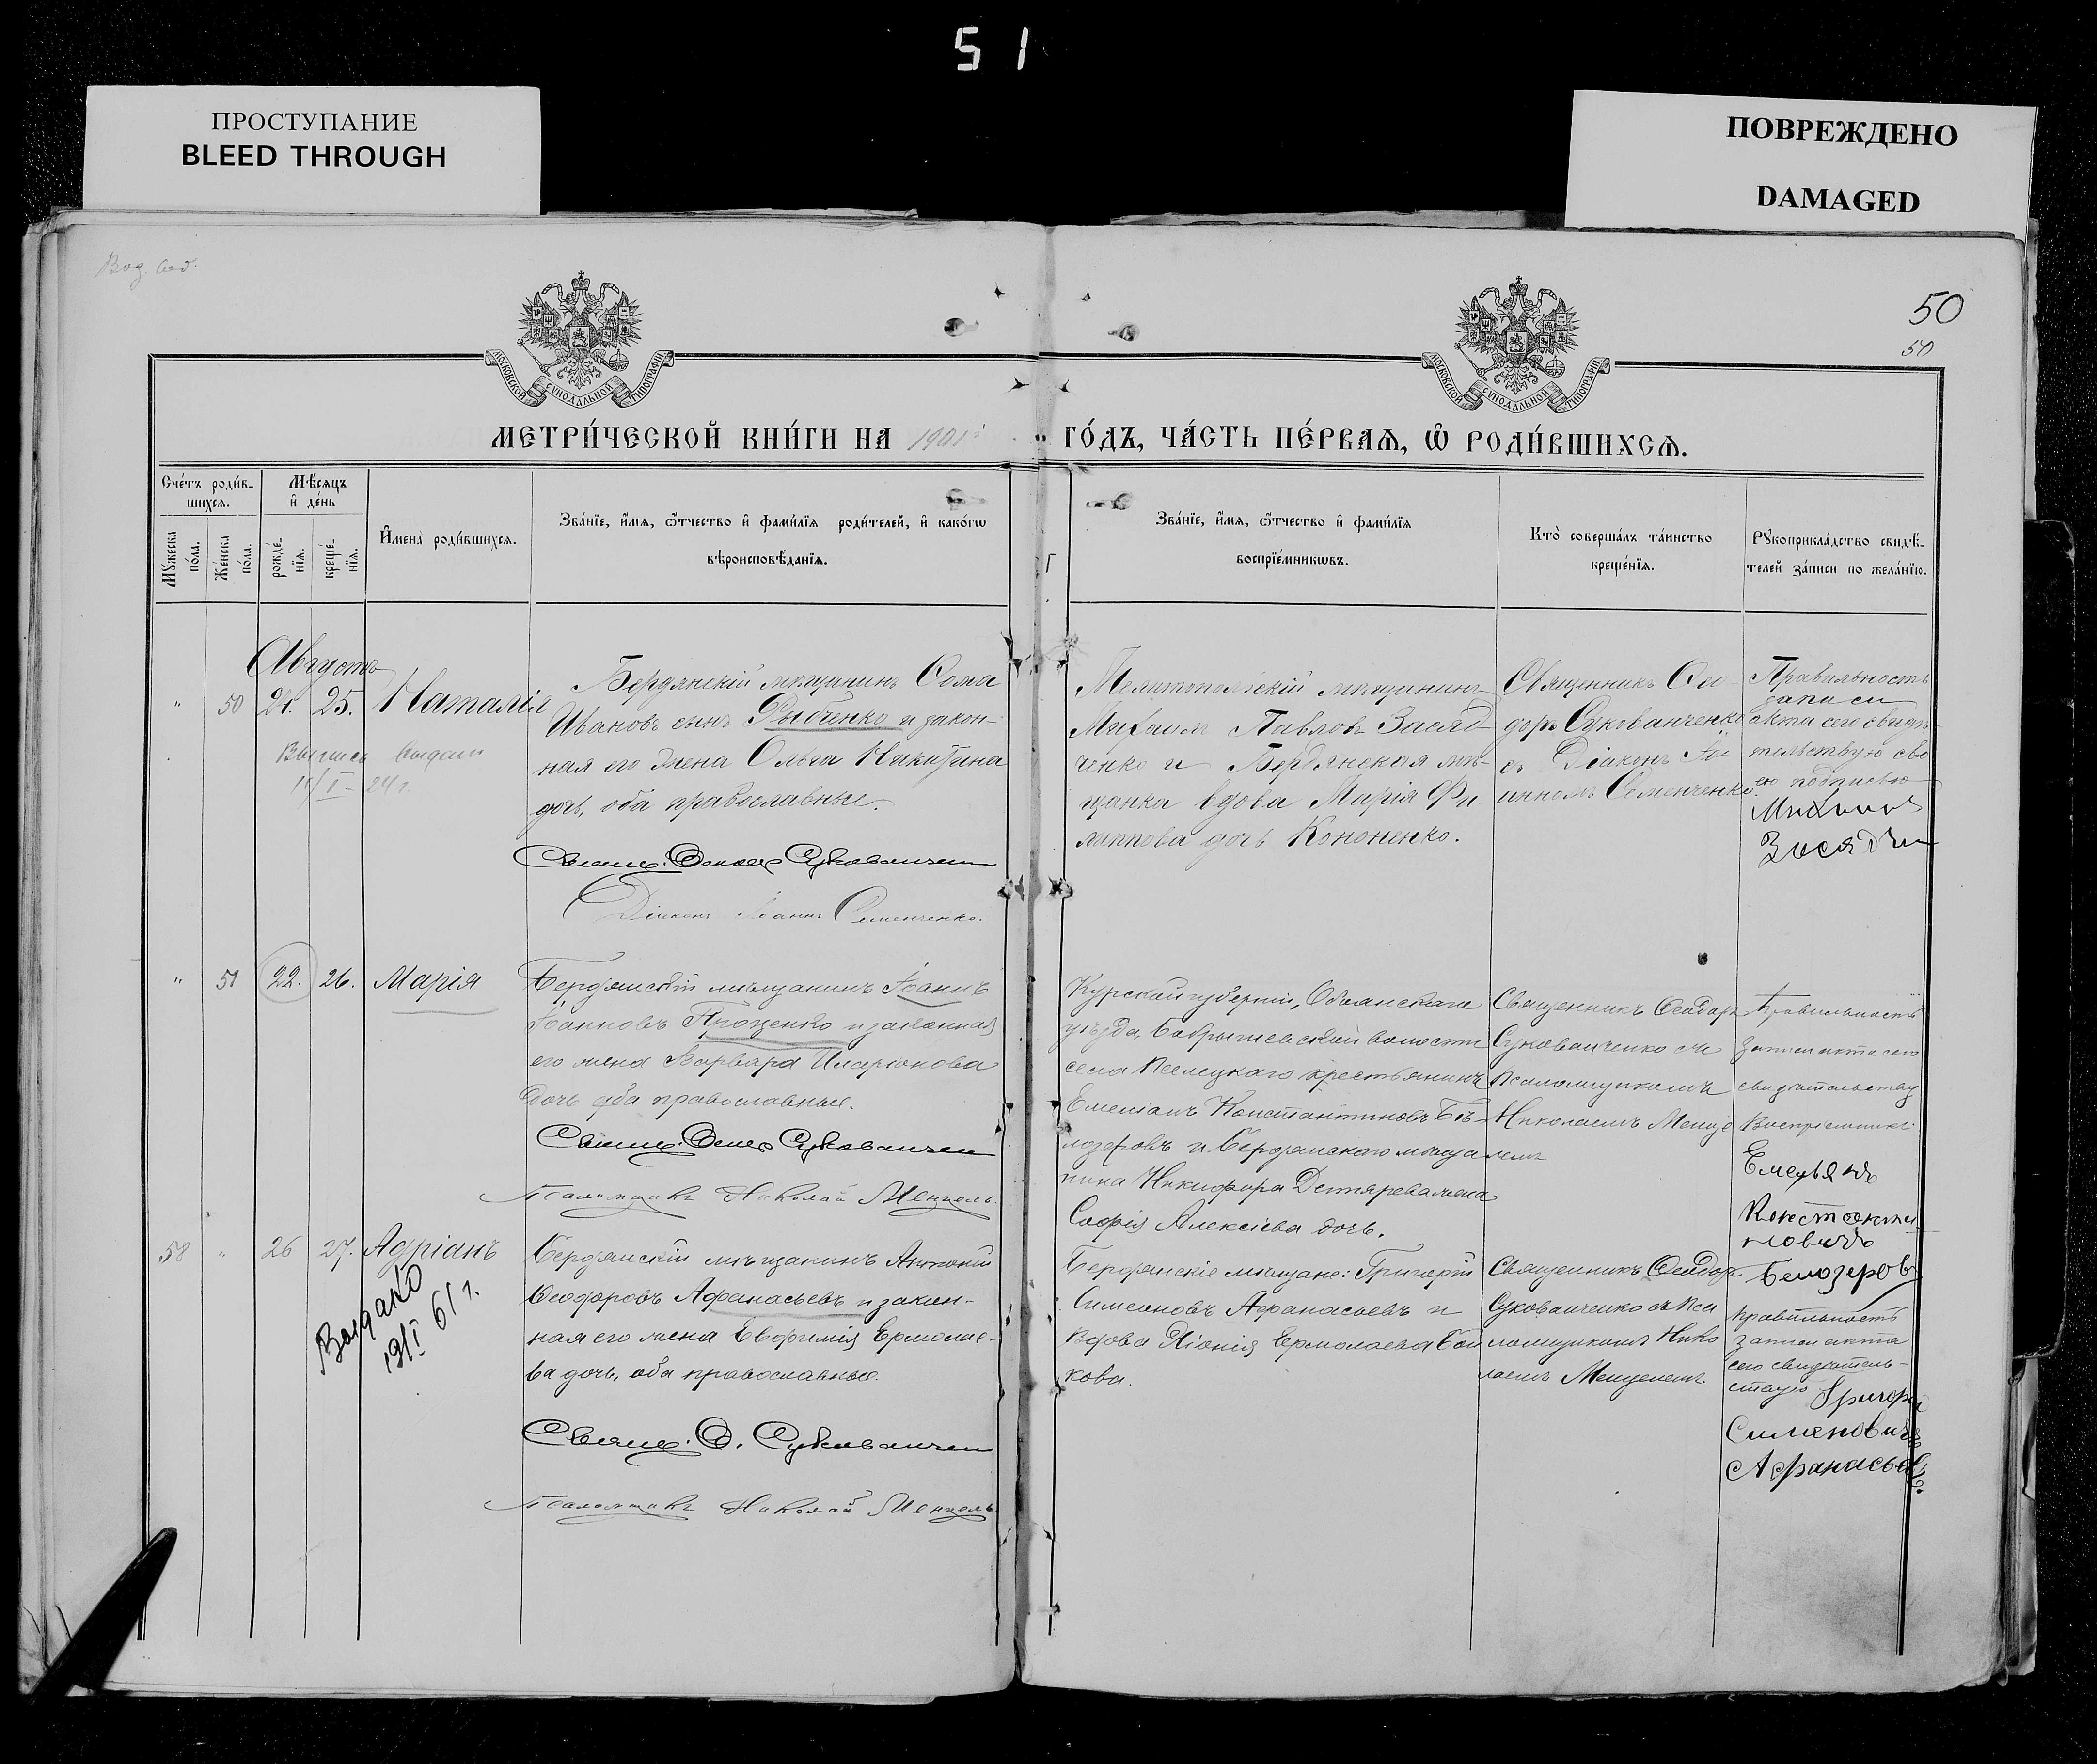 51
ПРОСТУПАНИЕ
BLEED THROUGH
ПОВРЕЖДЕНО
DAMAGED
50
50
МОСКОВСКОЙ СУНОДАЛЬНОЙ ТИПОГРАФІИ
МОСКОВСКОЙ СУНОДАЛЬНОЙ ТИПОГРАФІИ
МЕТРИ́ЧЕСКОЙ КНИ́ГИ НА 1901 ГО́ДЪ, ЧА́СТЬ ПЕ́РВАѦ, Ѡ РОДИ́ВШИХСѦ.
Сче́тъ роди́в-
шихсѧ.
Мѣ́сѧцъ
и҆ де́нь
Мꙋ́жеска
по́ла.
Же́нска
по́ла.
рожде́-
нїѧ.
креще́-
нїѧ.
И҆мена̀ роди́вшихсѧ.
Зва́нїе, и҆́мѧ, ѻ҆́тчество и҆ фами́лїѧ роди́телей, и҆ како́гѡ
вѣроисповѣ́данїѧ.
Зва́нїе, и҆́мѧ, ѻ҆́тчество и҆ фами́лїѧ
воспрїе́мникѡвъ.
Кто̀ соверша́лъ та́инство
креще́нїѧ.
Рꙋкоприкла́дство свидѣ́-
телей за́писи по жела́нїю.
Августъ
" 50 21. 25. Наталія
Выпись выдана
11/I-24 г.
Бердянскій мѣщанинъ Ѳома
Ивановъ сынъ Рыбченко и закон-
ная его жена Ольга Никитина
дочь, оба православные.
Свящ. Ѳеодоръ Сукованченко
Діаконъ Іоаннъ Семенченко.
Мелитопольскій мѣщанинъ
Михаилъ Павловъ Засяд-
ченко и Бердянская мѣ-
щанка вдова Марія Фи-
липпова дочь Кононенко.
Священникъ Ѳео-
доръ Сукованченко
съ Діаконъ Іо-
анномъ Семенченко.
Правильность
записи
акта сего свидѣ-
тельствую сво
ею подписью
Михаилъ
" 51 22. 26. Марія
Бердянскій мѣщанинъ Іоаннъ
Іоанновъ Проценко и законная
его жена Варвара Иларіонова
дочь оба православные.
Свящ. Ѳеодоръ Сукованченко
Псаломщикъ Николай Менцель.
Курской губерніи, Обоянскаго
уѣзда, Бобрышевской волости
села Пселецкаго крестьянинъ
Емеліанъ Константиновъ Бѣ-
лозеровъ и Бердянскаго мѣща
нина Никифора Дегтярева жена
Софія Алексіева дочь.
Священникъ Ѳеодоръ
Сукованченко съ
Псаломщикомъ
Николаемъ Менце
лемъ
Правильность
записи акта сего
свидѣтельствую
Воспріемникъ:
Емельянъ
Константи
новичъ
Белозеровъ
58 " 26 27. Адріанъ
Выдано
19/I 61 г.
Бердянскій мѣщанинъ Антоній
Ѳеодоровъ Афанасьевъ и закон-
ная его жена Евфимія Ермолае-
ва дочь, оба православные.
Свящ. Ѳ. Сукованченко
Псаломщикъ Николай Менцель
Бердянскіе мѣщане: Григорій
Симеоновъ Афанасьевъ и
Вдова Хіонія Ермолаева Бой
кова.
Священникъ Ѳеодоръ
Сукованченко съ Пса
ломщикомъ Нико
лаемъ Менцелемъ.
Правильность
записи акта
сего свидѣтель-
ствую Григорій
Сименовичъ
Афанасьевъ.